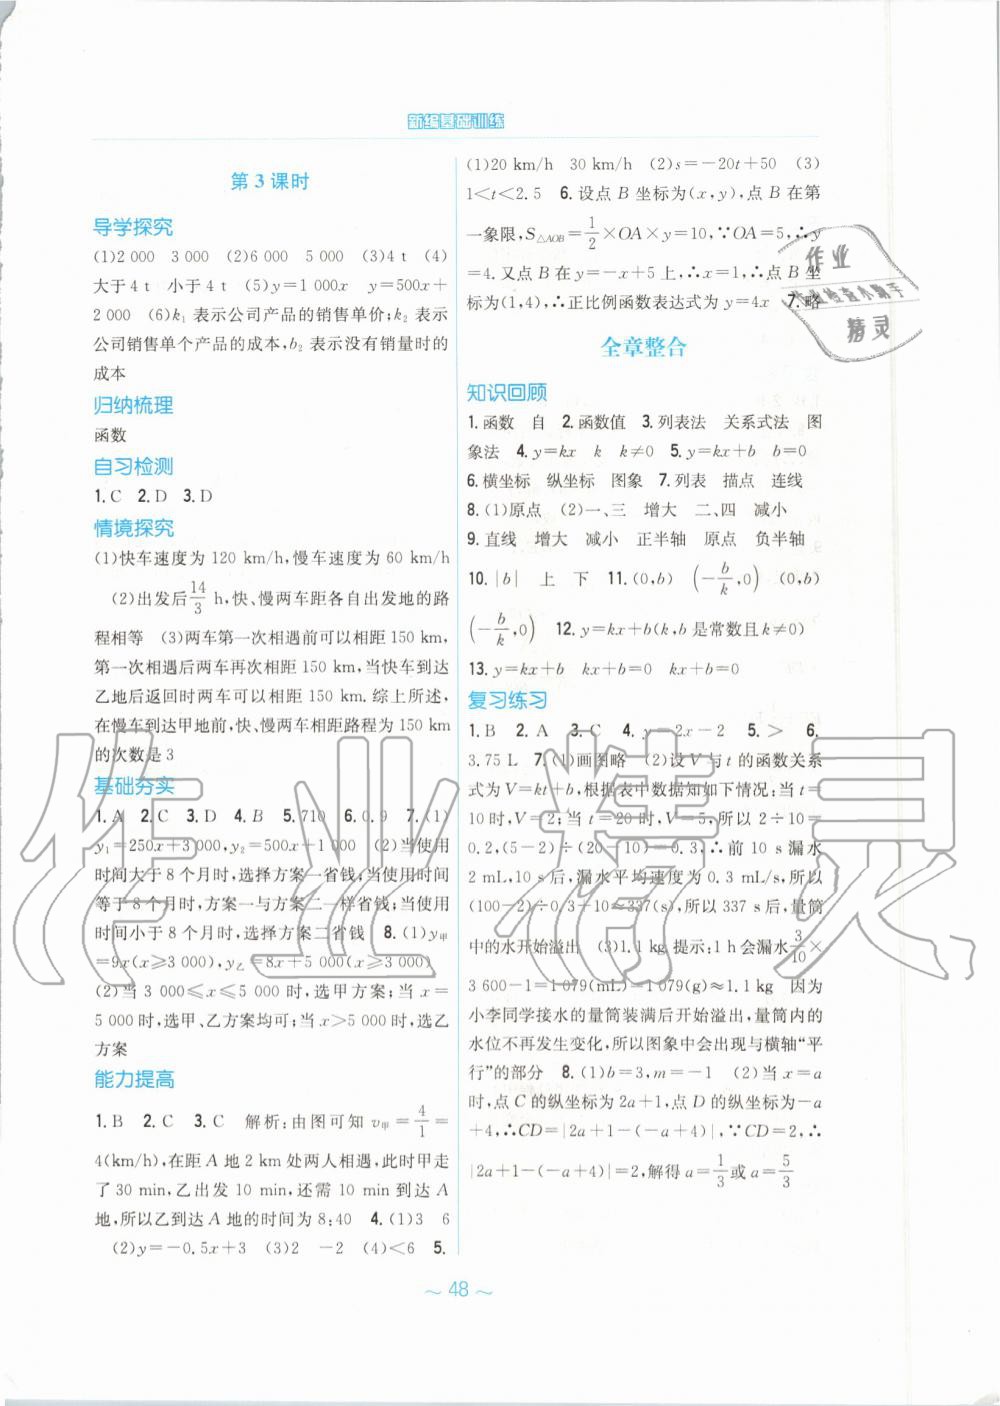 新编基础训练
第3课时
导学探究
(1)2 000　3 000　(2)6 000　5 000　(3)4 t　(4)
大于4 t　小于4 t　(5)y=1 000x　y=500x+
2 000　(6)k₁表示公司产品的销售单价;k₂表示
公司销售单个产品的成本,b₂表示没有销量时的
成本
归纳梳理
函数
自习检测
1.C　2.D　3.D
情境探究
(1)快车速度为120 km/h,慢车速度为60 km/h
(2)出发后14/3 h,快、慢两车距各自出发地的路
程相等　(3)两车第一次相遇前可以相距150 km,
第一次相遇后两车再次相距150 km,当快车到达
乙地后返回时两车可以相距150 km.综上所述,
在慢车到达甲地前,快、慢两车相距路程为150 km
的次数是3
基础夯实
1.A　2.C　3.D　4.B　5.710　6.0.9　7.(1)
y₁=250x+3 000,y₂=500x+1 000　(2)当使用
时间大于8个月时,选择方案一省钱;当使用时间
等于8个月时,方案一与方案二一样省钱;当使用
时间小于8个月时,选择方案二省钱　8.(1)y甲
=9x(x≥3 000),y乙=8x+5 000(x≥3 000)
(2)当3 000≤x≤5 000时,选甲方案;当x=
5 000时,选甲、乙方案均可;当x>5 000时,选乙
方案
能力提高
1.B　2.C　3.C　解析:由图可知v甲=4/1=
4(km/h),在距A地2 km处两人相遇,此时甲走
了30 min,乙出发10 min,还需10 min到达A
地,所以乙到达A地的时间为8:40　4.(1)3　6
(2)y=-0.5x+3　(3)2　-2　(4)<6　5.
(1)20 km/h　30 km/h　(2)s=-20t+50　(3)
1<t<2.5　6.设点B坐标为(x,y),点B在第
一象限,S△AOB=1/2×OA×y=10,∵OA=5,∴y
=4.又点B在y=-x+5上,∴x=1,∴点B坐
标为(1,4),∴正比例函数表达式为y=4x　7.略
全章整合
知识回顾
1.函数　自　2.函数值　3.列表法　关系式法　图
象法　4.y=kx　k　k≠0　5.y=kx+b　b=0
6.横坐标　纵坐标　图象　7.列表　描点　连线
8.(1)原点　(2)一、三　增大　二、四　减小
9.直线　增大　减小　正半轴　原点　负半轴
10.|b|　上　下　11.(0,b)　(-b/k,0)　(0,b)
(-b/k,0)　12.y=kx+b(k,b是常数且k≠0)
13.y=kx+b　kx+b=0　kx+b=0
复习练习
1.B　2.A　3.C　4.y=2x-2　5.>　6.
3.75 L　7.(1)画图略　(2)设V与t的函数关系
式为V=kt+b,根据表中数据知如下情况:当t=
10时,V=2;当t=20时,V=5,所以2÷10=
0.2,(5-2)÷(20-10)=0.3,∴前10 s漏水
2 mL,10 s后,漏水平均速度为0.3 mL/s,所以
(100-2)÷0.3+10≈337(s),所以337 s后,量筒
中的水开始溢出　(3)1.1 kg提示:1 h会漏水3/10×
3 600-1=1 079(mL)=1 079(g)≈1.1 kg　因为
小李同学接水的量筒装满后开始溢出,量筒内的
水位不再发生变化,所以图象中会出现与横轴“平
行”的部分　8.(1)b=3,m=-1　(2)当x=a
时,点C的纵坐标为2a+1,点D的纵坐标为-a
+4,∴CD=|2a+1-(-a+4)|,∵CD=2,∴
|2a+1-(-a+4)|=2,解得a=1/3或a=5/3
～48～
作业
精灵
作业精灵